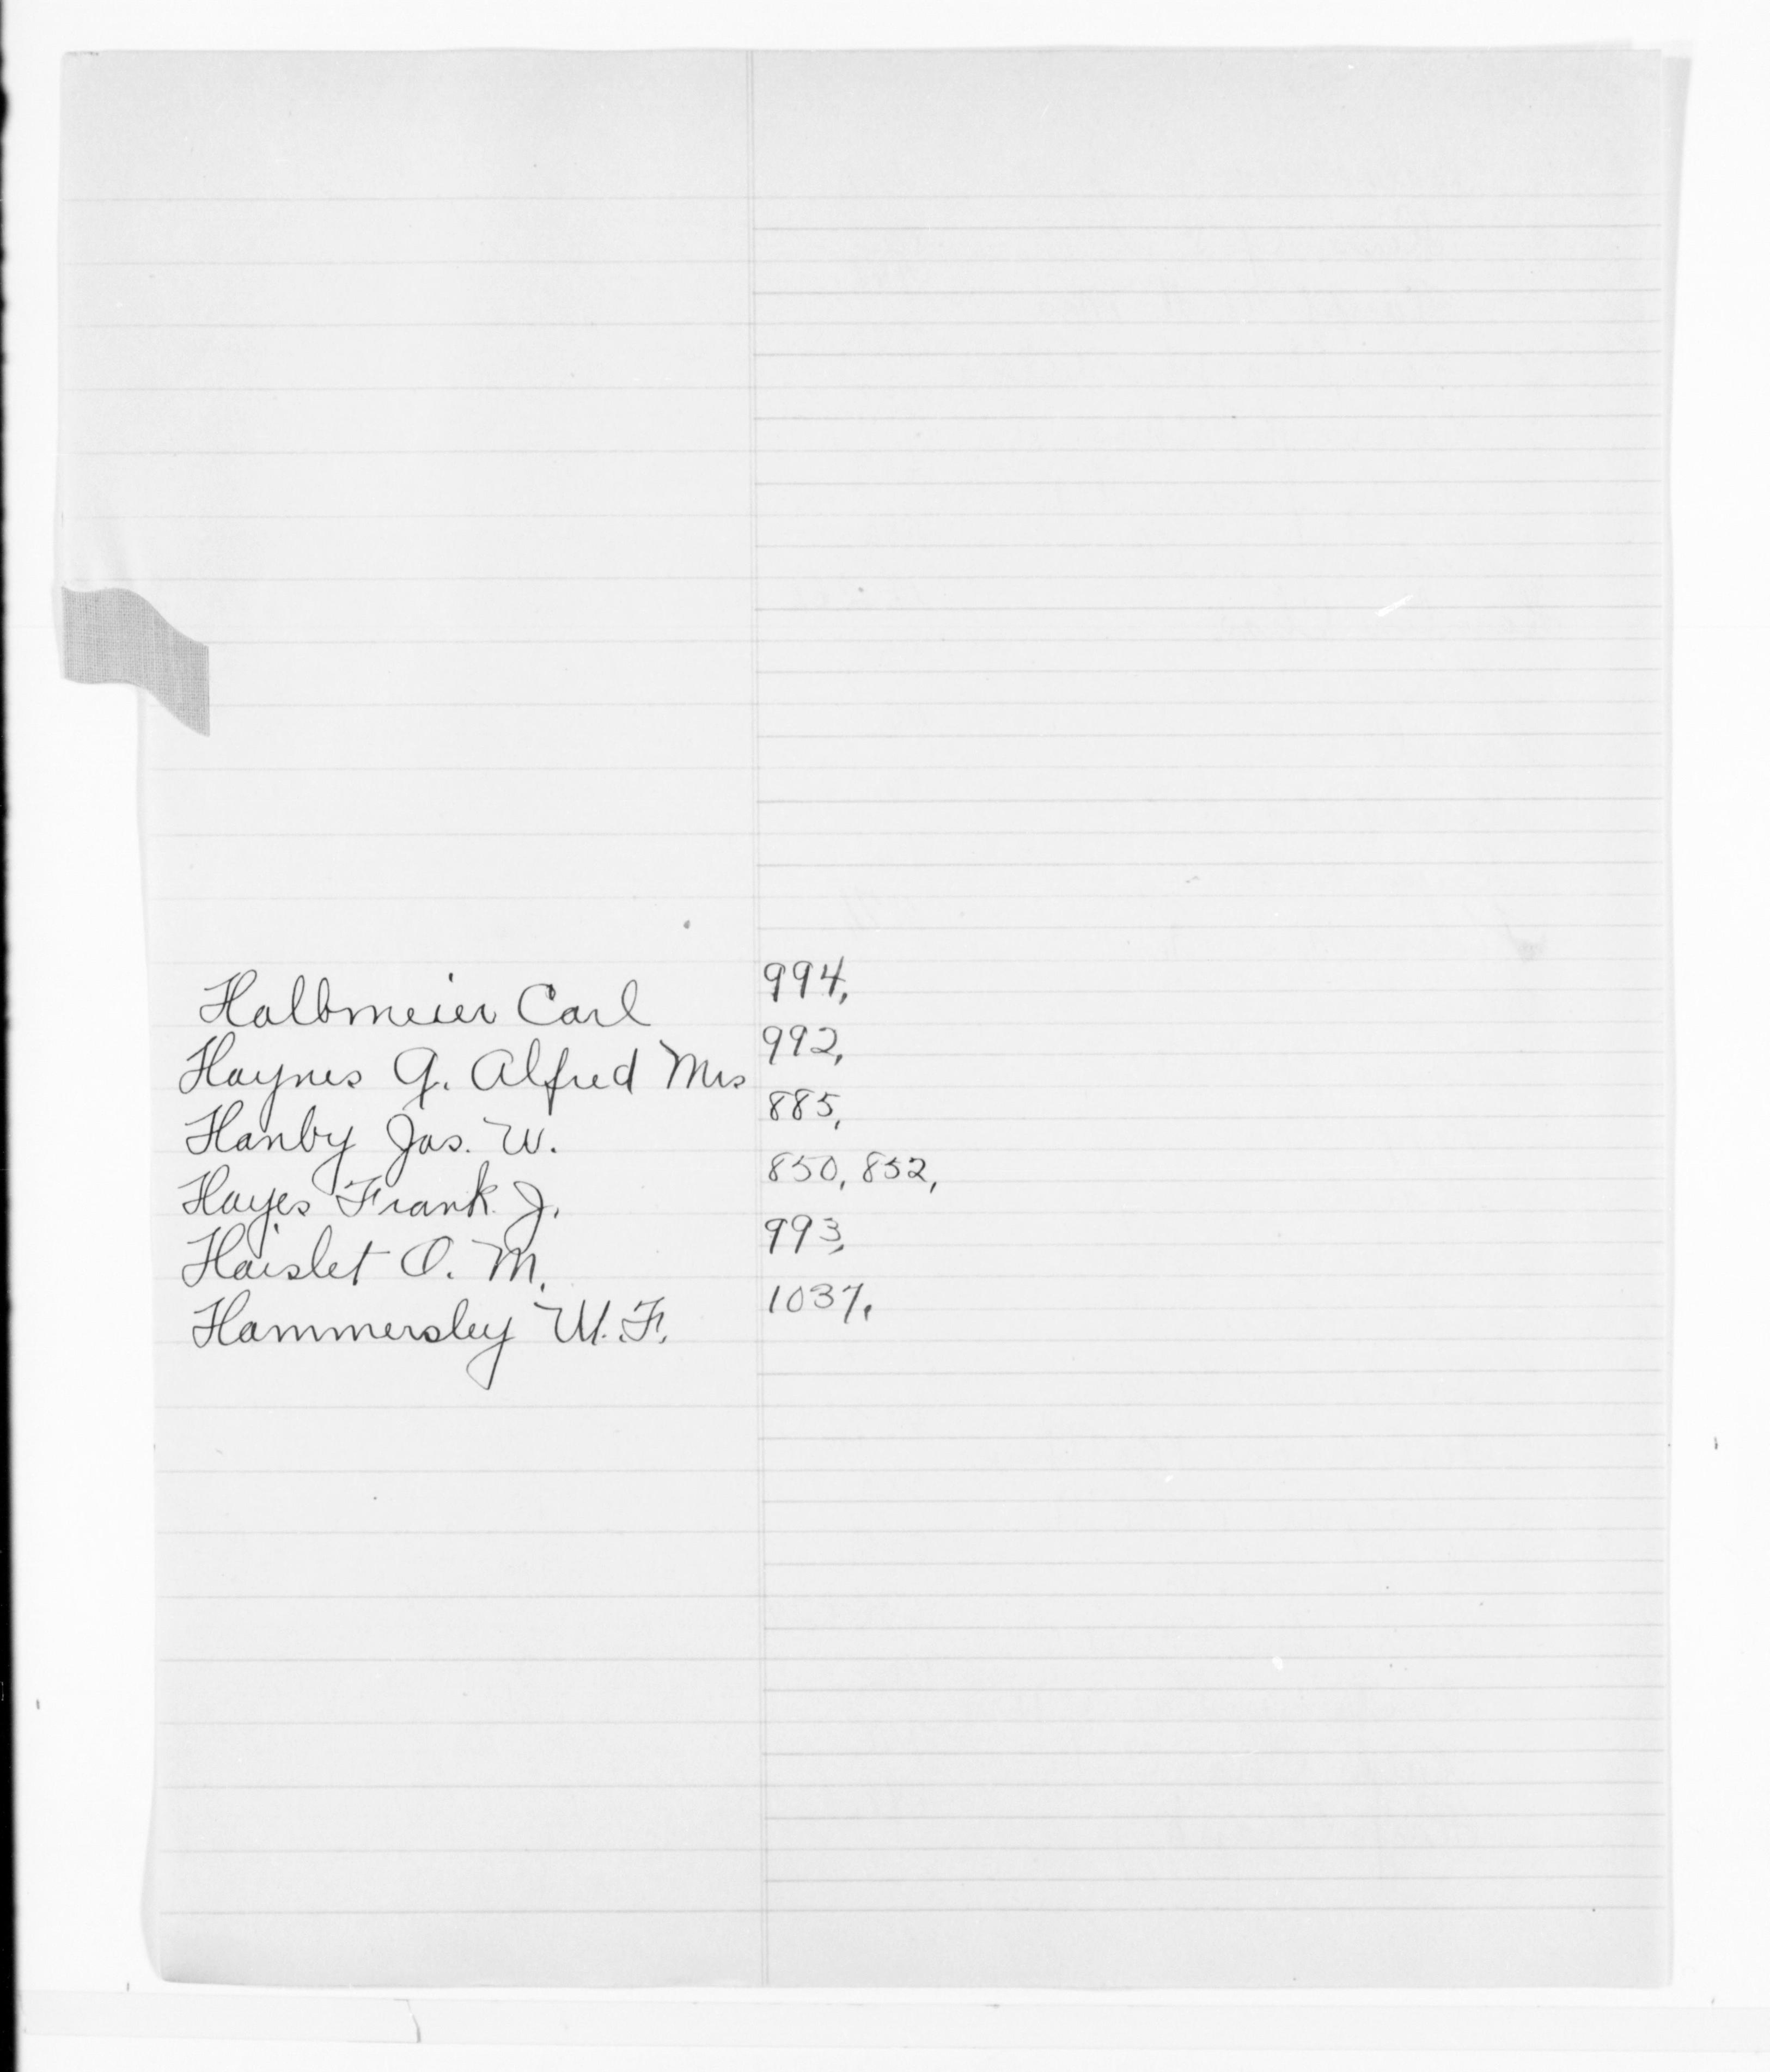 Halbmeier Carl 994,
Haynes G. Alfred Mrs 992,
Hanby Jas. W. 885,
Hayes Frank J. 850, 852,
Haislet O. M. 993,
Hammersley W. F. 1037,